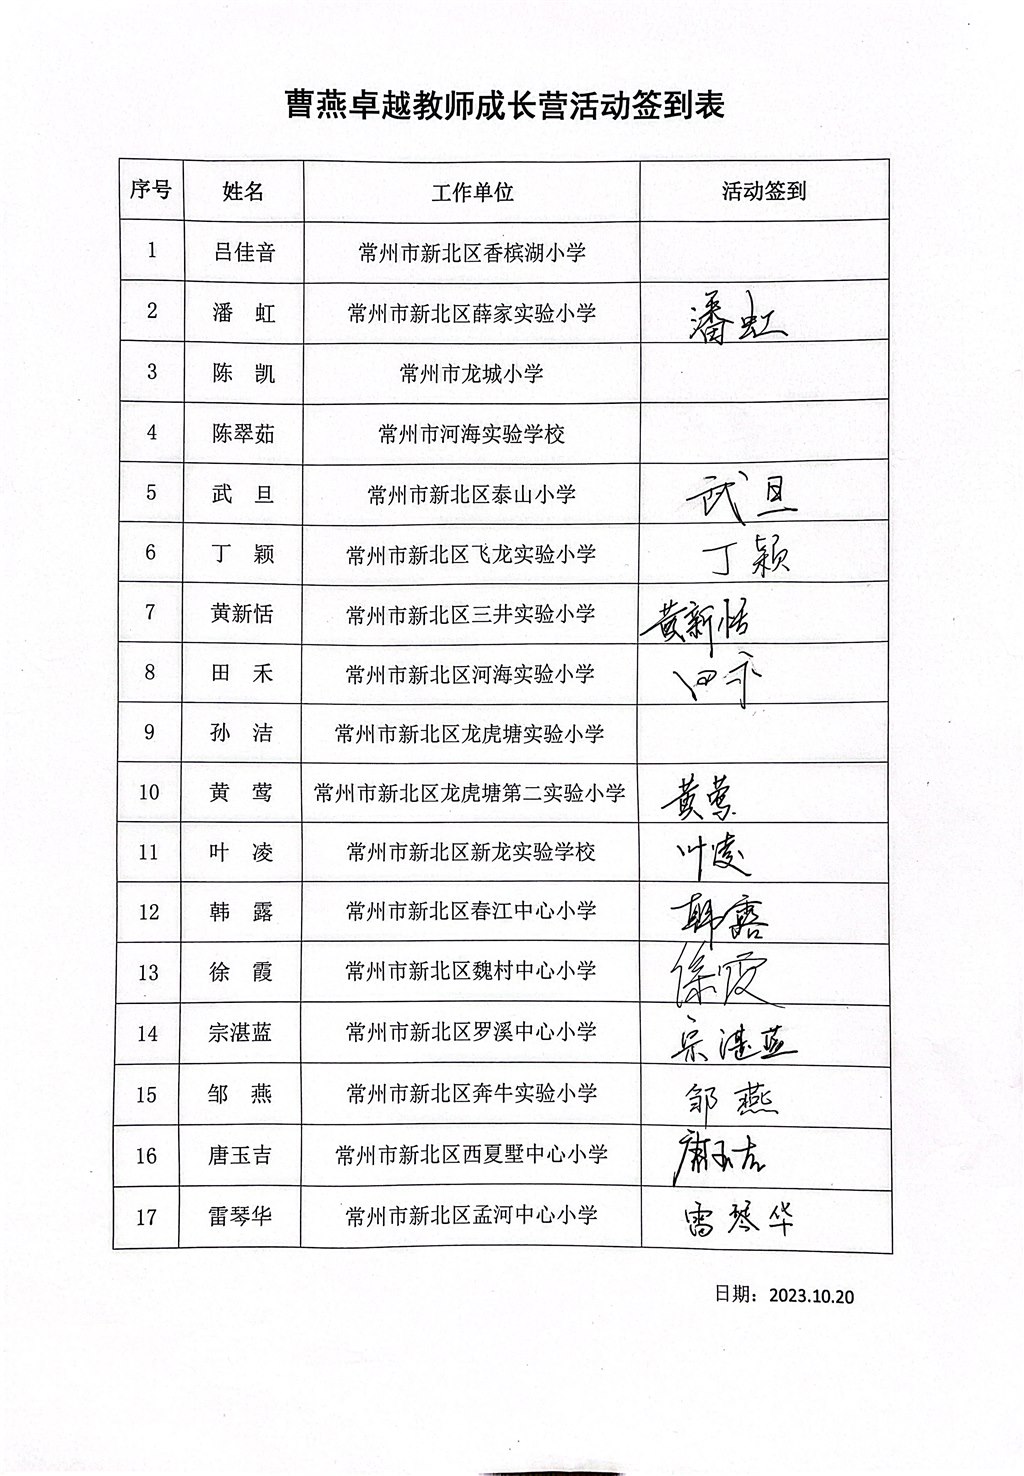 曹燕卓越教师成长营活动签到表
序号 姓名 工作单位 活动签到
1 吕佳音 常州市新北区香槟湖小学
2 潘 虹 常州市新北区薛家实验小学 潘虹
3 陈 凯 常州市龙城小学
4 陈翠茹 常州市河海实验学校
5 武 旦 常州市新北区泰山小学 武旦
6 丁 颖 常州市新北区飞龙实验小学 丁颖
7 黄新恬 常州市新北区三井实验小学 黄新恬
8 田 禾 常州市新北区河海实验小学 田禾
9 孙 洁 常州市新北区龙虎塘实验小学
10 黄 莺 常州市新北区龙虎塘第二实验小学 黄莺
11 叶 凌 常州市新北区新龙实验学校 叶凌
12 韩 露 常州市新北区春江中心小学 韩露
13 徐 霞 常州市新北区魏村中心小学 徐霞
14 宗湛蓝 常州市新北区罗溪中心小学 宗湛蓝
15 邹 燕 常州市新北区奔牛实验小学 邹燕
16 唐玉吉 常州市新北区西夏墅中心小学 唐玉吉
17 雷琴华 常州市新北区孟河中心小学 雷琴华
日期：2023.10.20